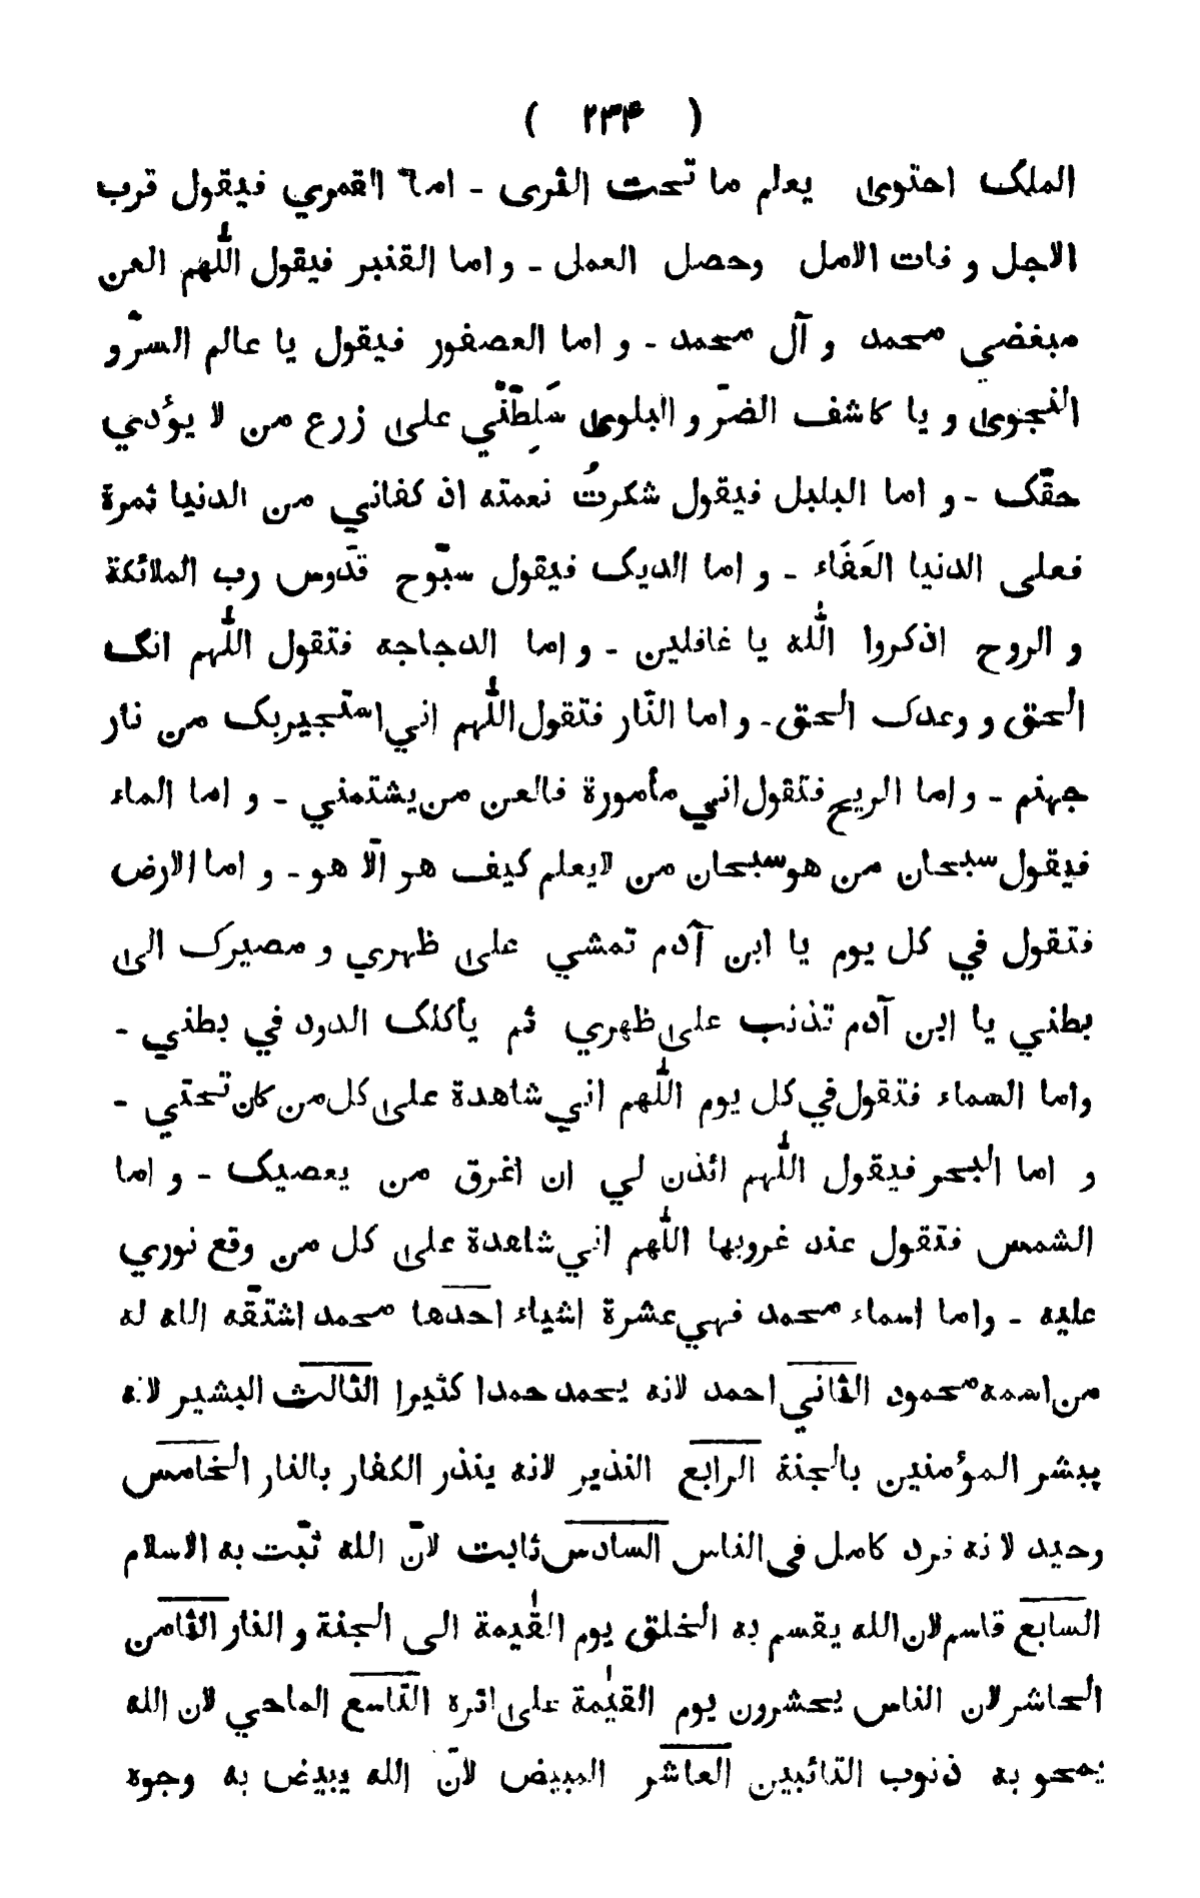 ( ۲۳۴ )
الملک احتوی یعلم ما تحت الثری - اما القمري فیقول قرب
الاجل و فات الامل وحصل العمل - و اما القنبر فیقول اللّٰهم العن
مبغضي محمد و آل محمد - و اما العصفور فیقول یا عالم السرّ و
النجوی و یا کاشف الضرّ و البلوی سَلِطّنْي علی زرع من لا یؤدي
حقّک - و اما البلبل فیقول شکرتُ نعمته اذ کفاني من الدنیا ثمرة
فعلی الدنیا العَفَاء - و اما الدیک فیقول سبّوح قدّوس رب الملائکة
و الروح اذکروا اللّٰه یا غافلین - و اما الدجاجه فتقول اللّٰهم انک
الحق و وعدک الحق - و اما النّار فتقول اللّٰهم اني استجیربک من نار
جهنم - و اما الریح فتقول اني مأمورة فالعن من یشتمني - و اما الماء
فیقول سبحان من هو سبحان من لایعلم کیف هو الّا هو - و اما الارض
فتقول في کل یوم یا ابن آدم تمشي علی ظهري و مصیرک الی
بطني یا ابن آدم تذنب علی ظهري ثم یأکلک الدود في بطني -
واما السماء فتقول في کل یوم اللّٰهم اني شاهدة علی کل من کان تحتي -
و اما البحر فیقول اللّٰهم ائذن لي ان اغرق من یعصیک - و اما
الشمس فتقول عند غروبها اللّٰهم اني شاهدة علی کل من وقع نوري
علیه - واما اسماء محمد فهي عشرة اشیاء احدها محمد اشتقّه الله له
من اسمه محمود الثاني احمد لانه یحمد حمدا کثیرا الثالث البشیر لانه
یبشر المؤمنین بالجنة الرابع النذیر لانه ینذر الکفار بالنار الخامس
وحید لانه فرد کامل فی الناس السادس ثابت لانّ الله ثبّت به الاسلام
السابع قاسم لان الله یقسم به الخلق یوم القیٰمة الی الجنة و النار الثامن
الحاشر لان الناس یحشرون یوم القیٰمة علی اثره التاسع الماحي لان الله
یمحو به ذنوب التائبین العاشر المبیض لانّ الله یبیض به وجوه